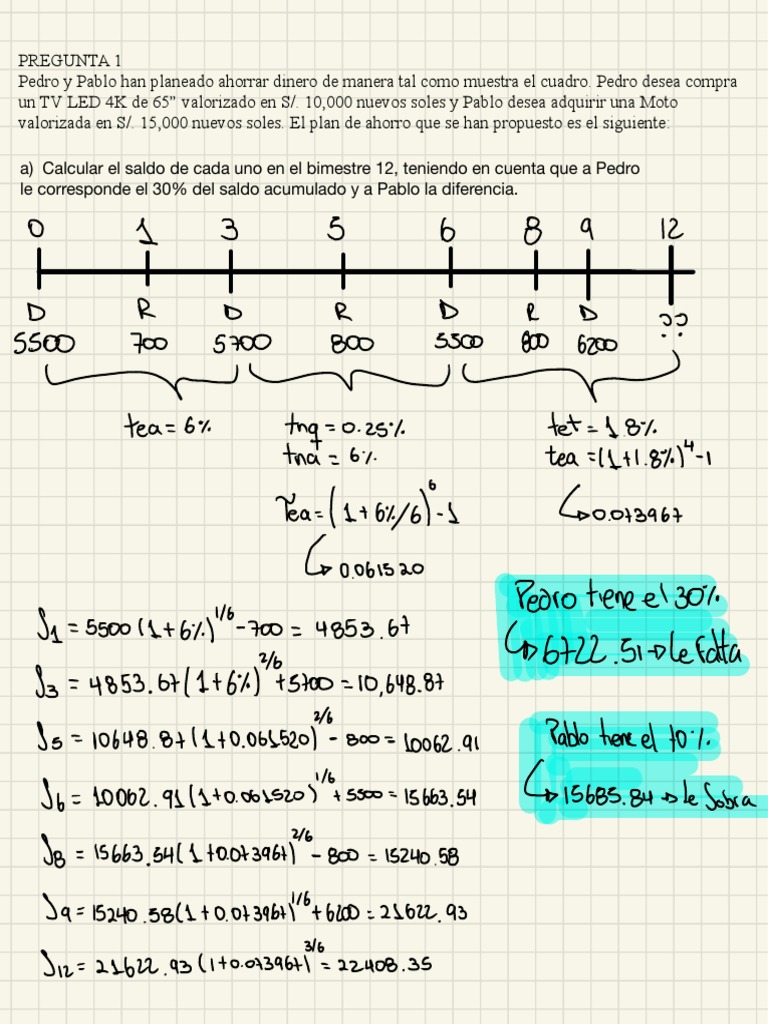 PREGUNTA 1
Pedro y Pablo han planeado ahorrar dinero de manera tal como muestra el cuadro. Pedro desea compra
un TV LED 4K de 65” valorizado en S/. 10,000 nuevos soles y Pablo desea adquirir una Moto
valorizada en S/. 15,000 nuevos soles. El plan de ahorro que se han propuesto es el siguiente:
a) Calcular el saldo de cada uno en el bimestre 12, teniendo en cuenta que a Pedro
le corresponde el 30% del saldo acumulado y a Pablo la diferencia.
0 1 3 5 6 8 9 12
D R D R D R D ??
5500 700 5700 800 5500 800 6200
tea = 6%
tnq = 0.25%
tna = 6%
Tea = (1+6%/6)^6 - 1
↳ 0.061520
tet = 1.8%
tea = (1+1.8%)^4 - 1
↳ 0.073967
Pedro tiene el 30%
↳ 6722.51 → le falta
Pablo tiene el 70%
↳ 15685.84 → le sobra
S1 = 5500 (1+6%)^1/6 - 700 = 4853.67
S3 = 4853.67 (1+6%)^2/6 + 5700 = 10,648.87
S5 = 10648.87 (1+0.061520)^2/6 - 800 = 10062.91
S6 = 10062.91 (1+0.061520)^1/6 + 5500 = 15663.54
S8 = 15663.54 (1+0.073967)^2/6 - 800 = 15240.58
S9 = 15240.58 (1+0.073967)^1/6 + 6200 = 21622.93
S12 = 21622.93 (1+0.073967)^3/6 = 22408.35